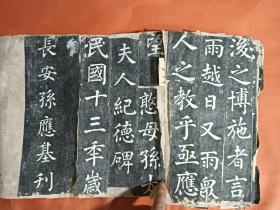 浚之博施者言
雨越日又雨眾
人之教乎亟應
憨母孫太
夫人紀德碑
民國十三季歲
長安孫應基刊